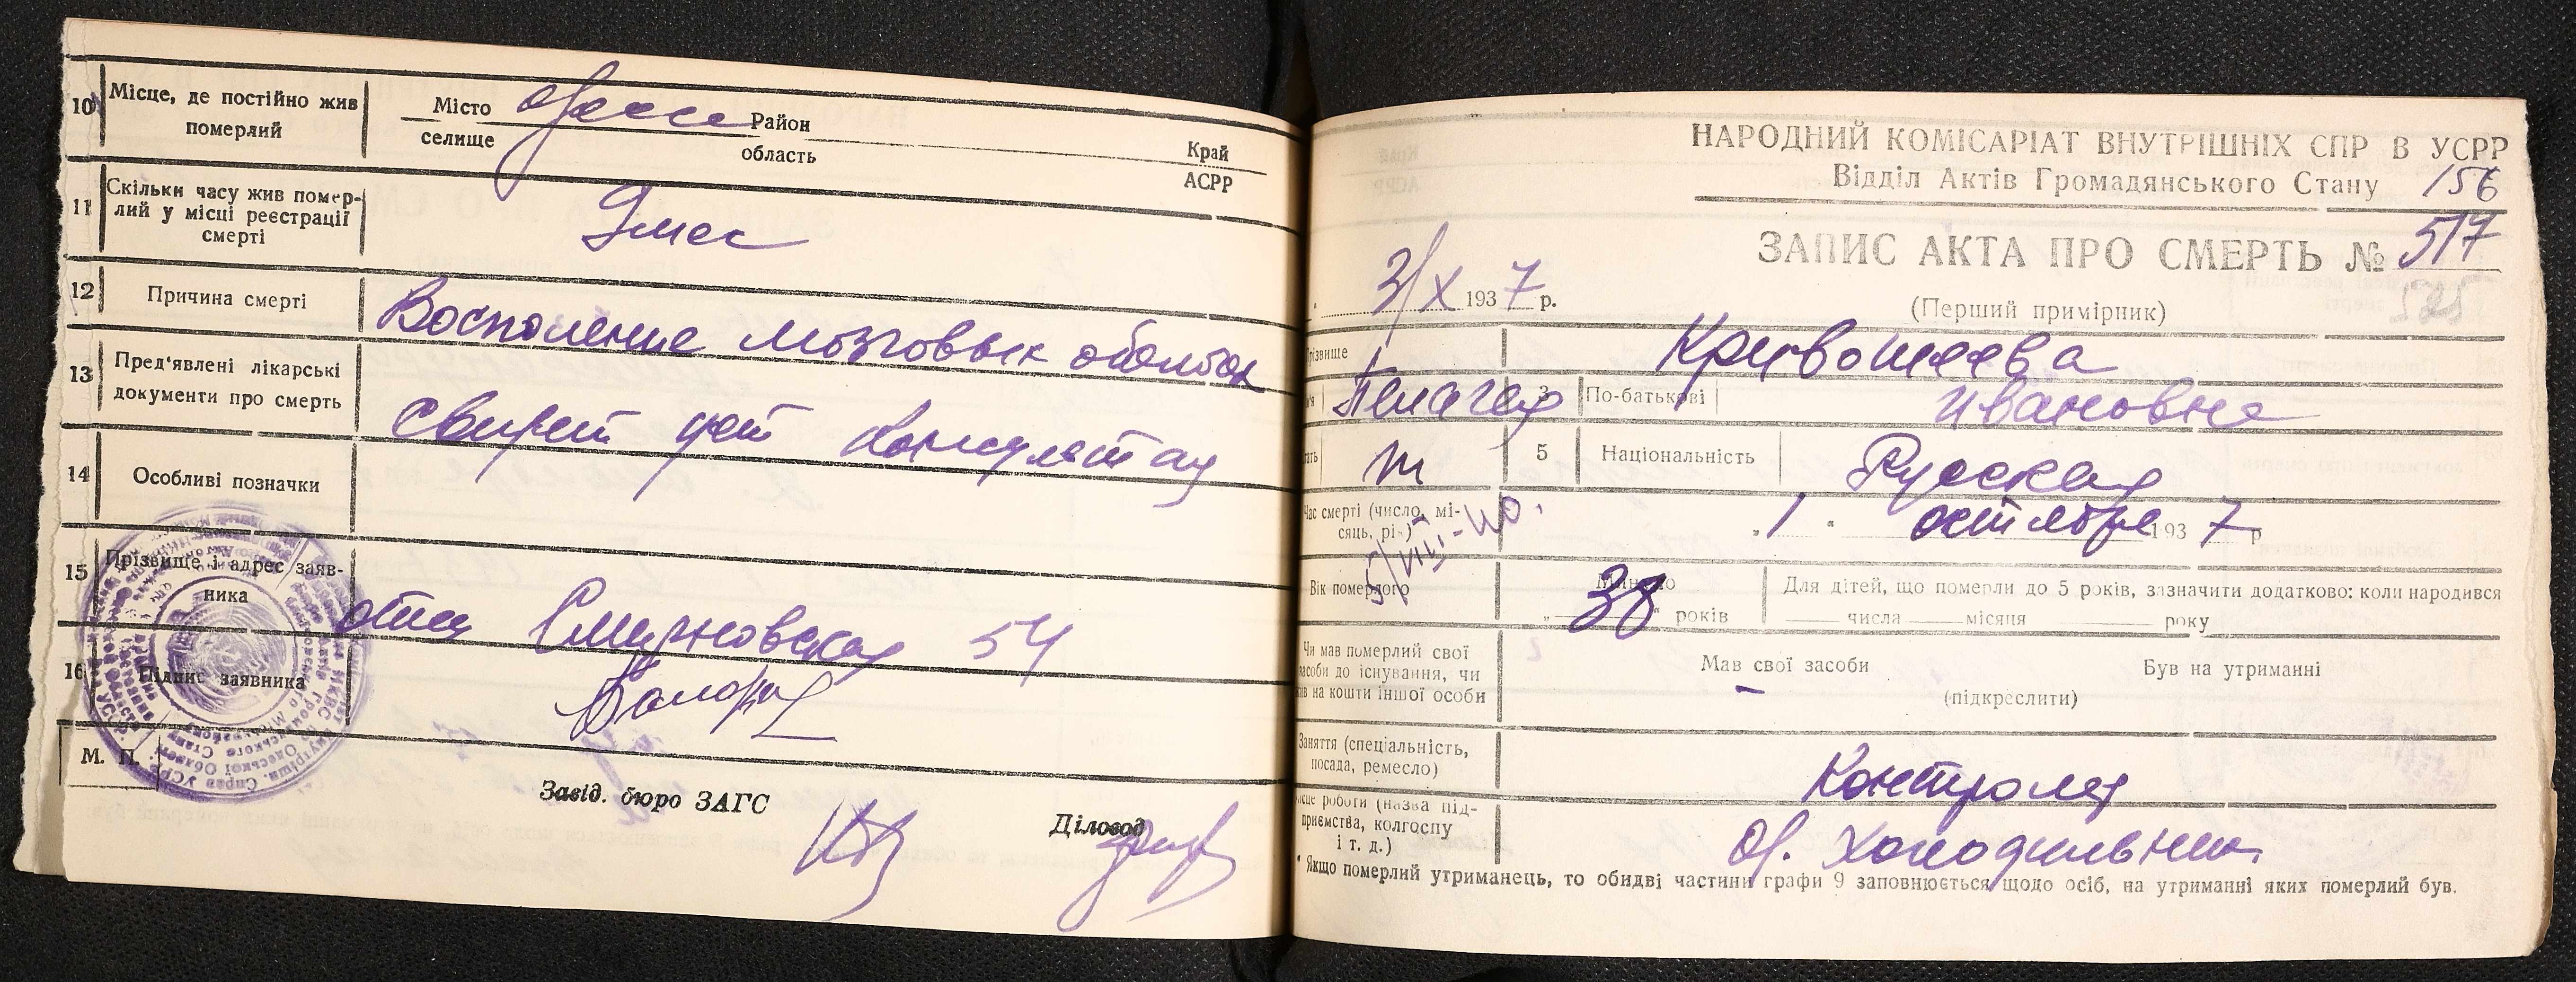 10 Місце, де постійно жив померлий
Місто Одесса Район Край
селище область АСРР
11 Скільки часу жив помер-
лий у місці реєстрації
смерті
9 мес
12 Причина смерті
Воспаление мозговых оболочек
13 Пред'явлені лікарські
документи про смерть
14 Особливі позначки
15 Прізвище і адрес заяв-
ника
Смирновская 54
16 Підпис заявника
М. П.
Завід. бюро ЗАГС
Діловод
НАРОДНИЙ КОМІСАРІАТ ВНУТРІШНІХ СПР В УСРР
Відділ Актів Громадянського Стану 156
ЗАПИС АКТА ПРО СМЕРТЬ № 517
525
3/X 1937 р.
(Перший примірник)
Прізвище Кривошеева
Пелагея 3 По-батькові Ивановна
5 Національність Русская
Час смерті (число, мі-
сяць, рік)
„1" октября 1937 р
Вік померлого
38 років
Для дітей, що померли до 5 років, зазначити додатково: коли народився
числа місяця року
Чи мав померлий свої
засоби до існування, чи
жив на кошти іншої особи
Мав свої засоби Був на утриманні
(підкреслити)
Заняття (спеціальність,
посада, ремесло)
Контролер
Місце роботи (назва під-
приємства, колгоспу
і т. д.)
Од. Холодильник
* Якщо померлий утриманець, то обидві частини графи 9 заповнюється щодо осіб, на утриманні яких померлий був.